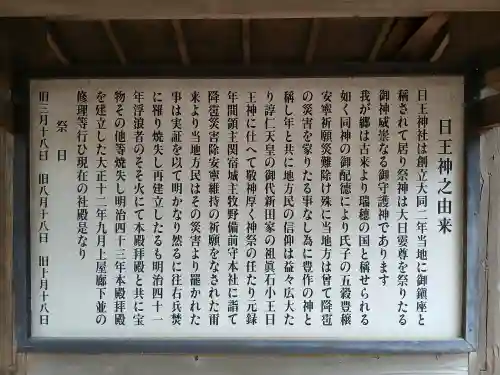 日王神之由来
日王神社は創立大同二年当地に御鎮座と
称されて居り祭神は大日孁尊を祭りたる
御神威崇なる御守護神であります
我が郷は古来より瑞穂の国と称せられる
如く同神の御配德により氏子の五穀豊穣
安寧祈願災難除け殊に当地方は曽て降雹
の災害を蒙りたる事なし為に豊作の神と
称し年と共に地方民の信仰は益々広大た
り淳仁天皇の御代新田家の祖眞石小王日
王神に仕へて敬神厚く神祭の任たり元録
年間領主関宿城主牧野備前守本社に詣て
降雹災害除安寧維持の祈願をなされた爾
来より当地方民はその災害より罷かれた
事は実証を以て明かなり然るに往右兵焚
に罹り焼失し再建立したるも明治四十一
年浮浪者のそそ火にて本殿拝殿と共に宝
物その他等焼失し明治四十三年本殿拝殿
を建立した大正十二年九月上屋廊下並の
修理等行ひ現在の社殿是なり
祭日
旧三月十八日 旧八月十八日 旧十月十八日